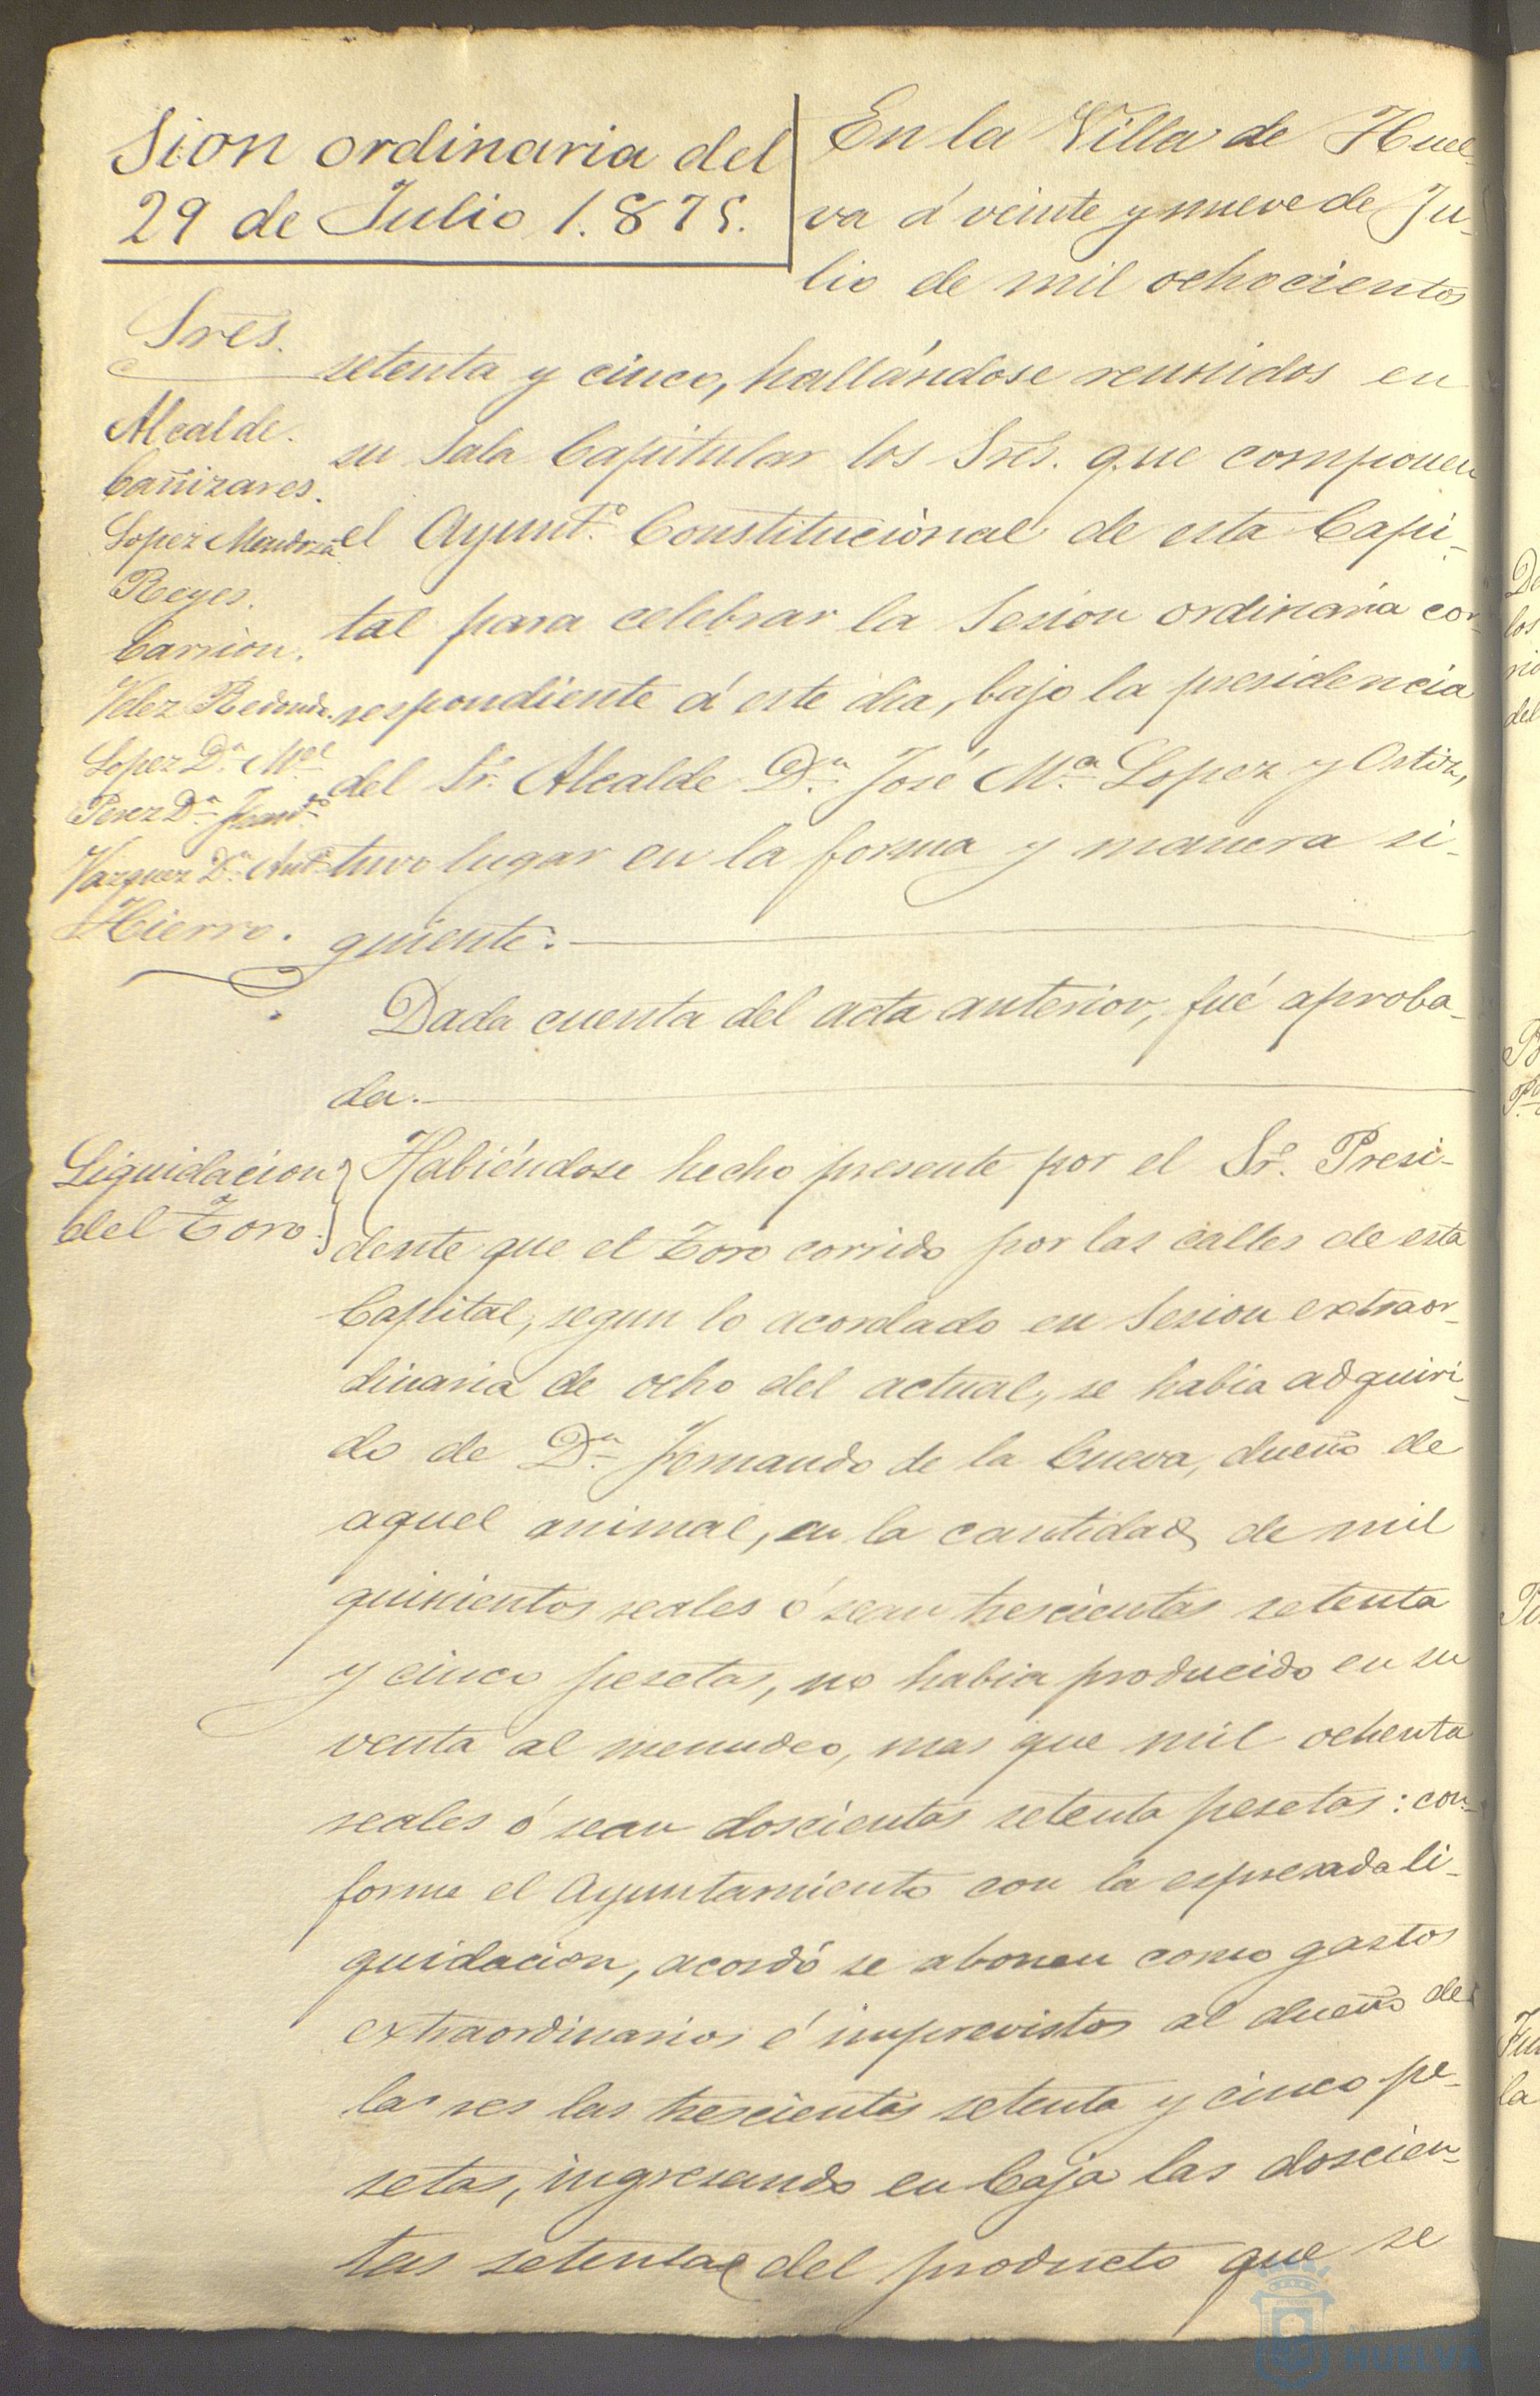 Sion ordinaria del
29 de Julio 1.875.
Sres.
Alcalde.
Cañizares.
Lopez Mendoza
Reyes.
Carrion.
Velez Redondo.
Lopez Dn. Mel
Perez Dn. Franco
Vazquez Dn. Anto
Hierro.
En la Villa de Huel-
va á veinte y nueve de Ju-
lio de mil ochocientos
setenta y cinco, hallándose reunidos en
su Sala Capitular los Sres. que componen
el Ayunto. Constitucional de esta Capi-
tal para celebrar la Sesion ordinaria cor-
respondiente á este dia, bajo la presidencia
del Sr. Alcalde Dn. José Ma. Lopez y Ortiz,
tuvo lugar en la forma y manera si-
guiente.
Dada cuenta del acta anterior, fué aproba-
da.
Liquidacion
del Toro.
Habiéndose hecho presente por el Sr. Presi-
dente que el Toro corrido por las calles de esta
Capital, segun lo acordado en Sesion extraor-
dinaria de ocho del actual, se habia adquiri-
do de Dn. Fernando de la Cueva, dueño de
aquel animal, en la cantidad de mil
quinientos reales ó sean trescientas setenta
y cinco pesetas, no habia producido en su
venta al menudeo, mas que mil ochenta
reales ó sean doscientas setenta pesetas: con-
forme el Ayuntamiento con la espresada li-
quidacion, acordó se abonen como gastos
extraordinarios é imprevistos al dueño de
la res las trescientas setenta y cinco pe-
setas, ingresando en Caja las doscien-
tas setenta del producto que se
HUELVA